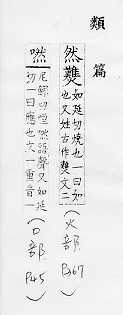 類篇
然㸐如延切燒也一曰如
也又姓古作㸐文二
（火部 P367）
㗲尼鯁切㗲㗲語聲又如延
切一曰應也文一重音一
（口部 P45）